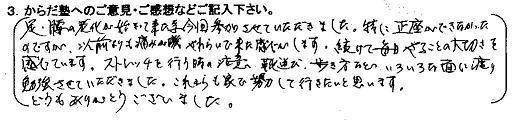 3. からだ塾へのご意見・ご感想などご記入下さい。
足・腰の老化が始まって来た為今回参加させていただきました。特に正座ができなかった
のですが、以前よりも痛みが和らいで来た感じがします。続けて毎日やることの大切さを
感じています。ストレッチを行う時の注意、靴選び、歩き方など いろいろな面に渡り
勉強させていただきました。これからも家で努力して行きたいと思います。
どうもありがとうございました。